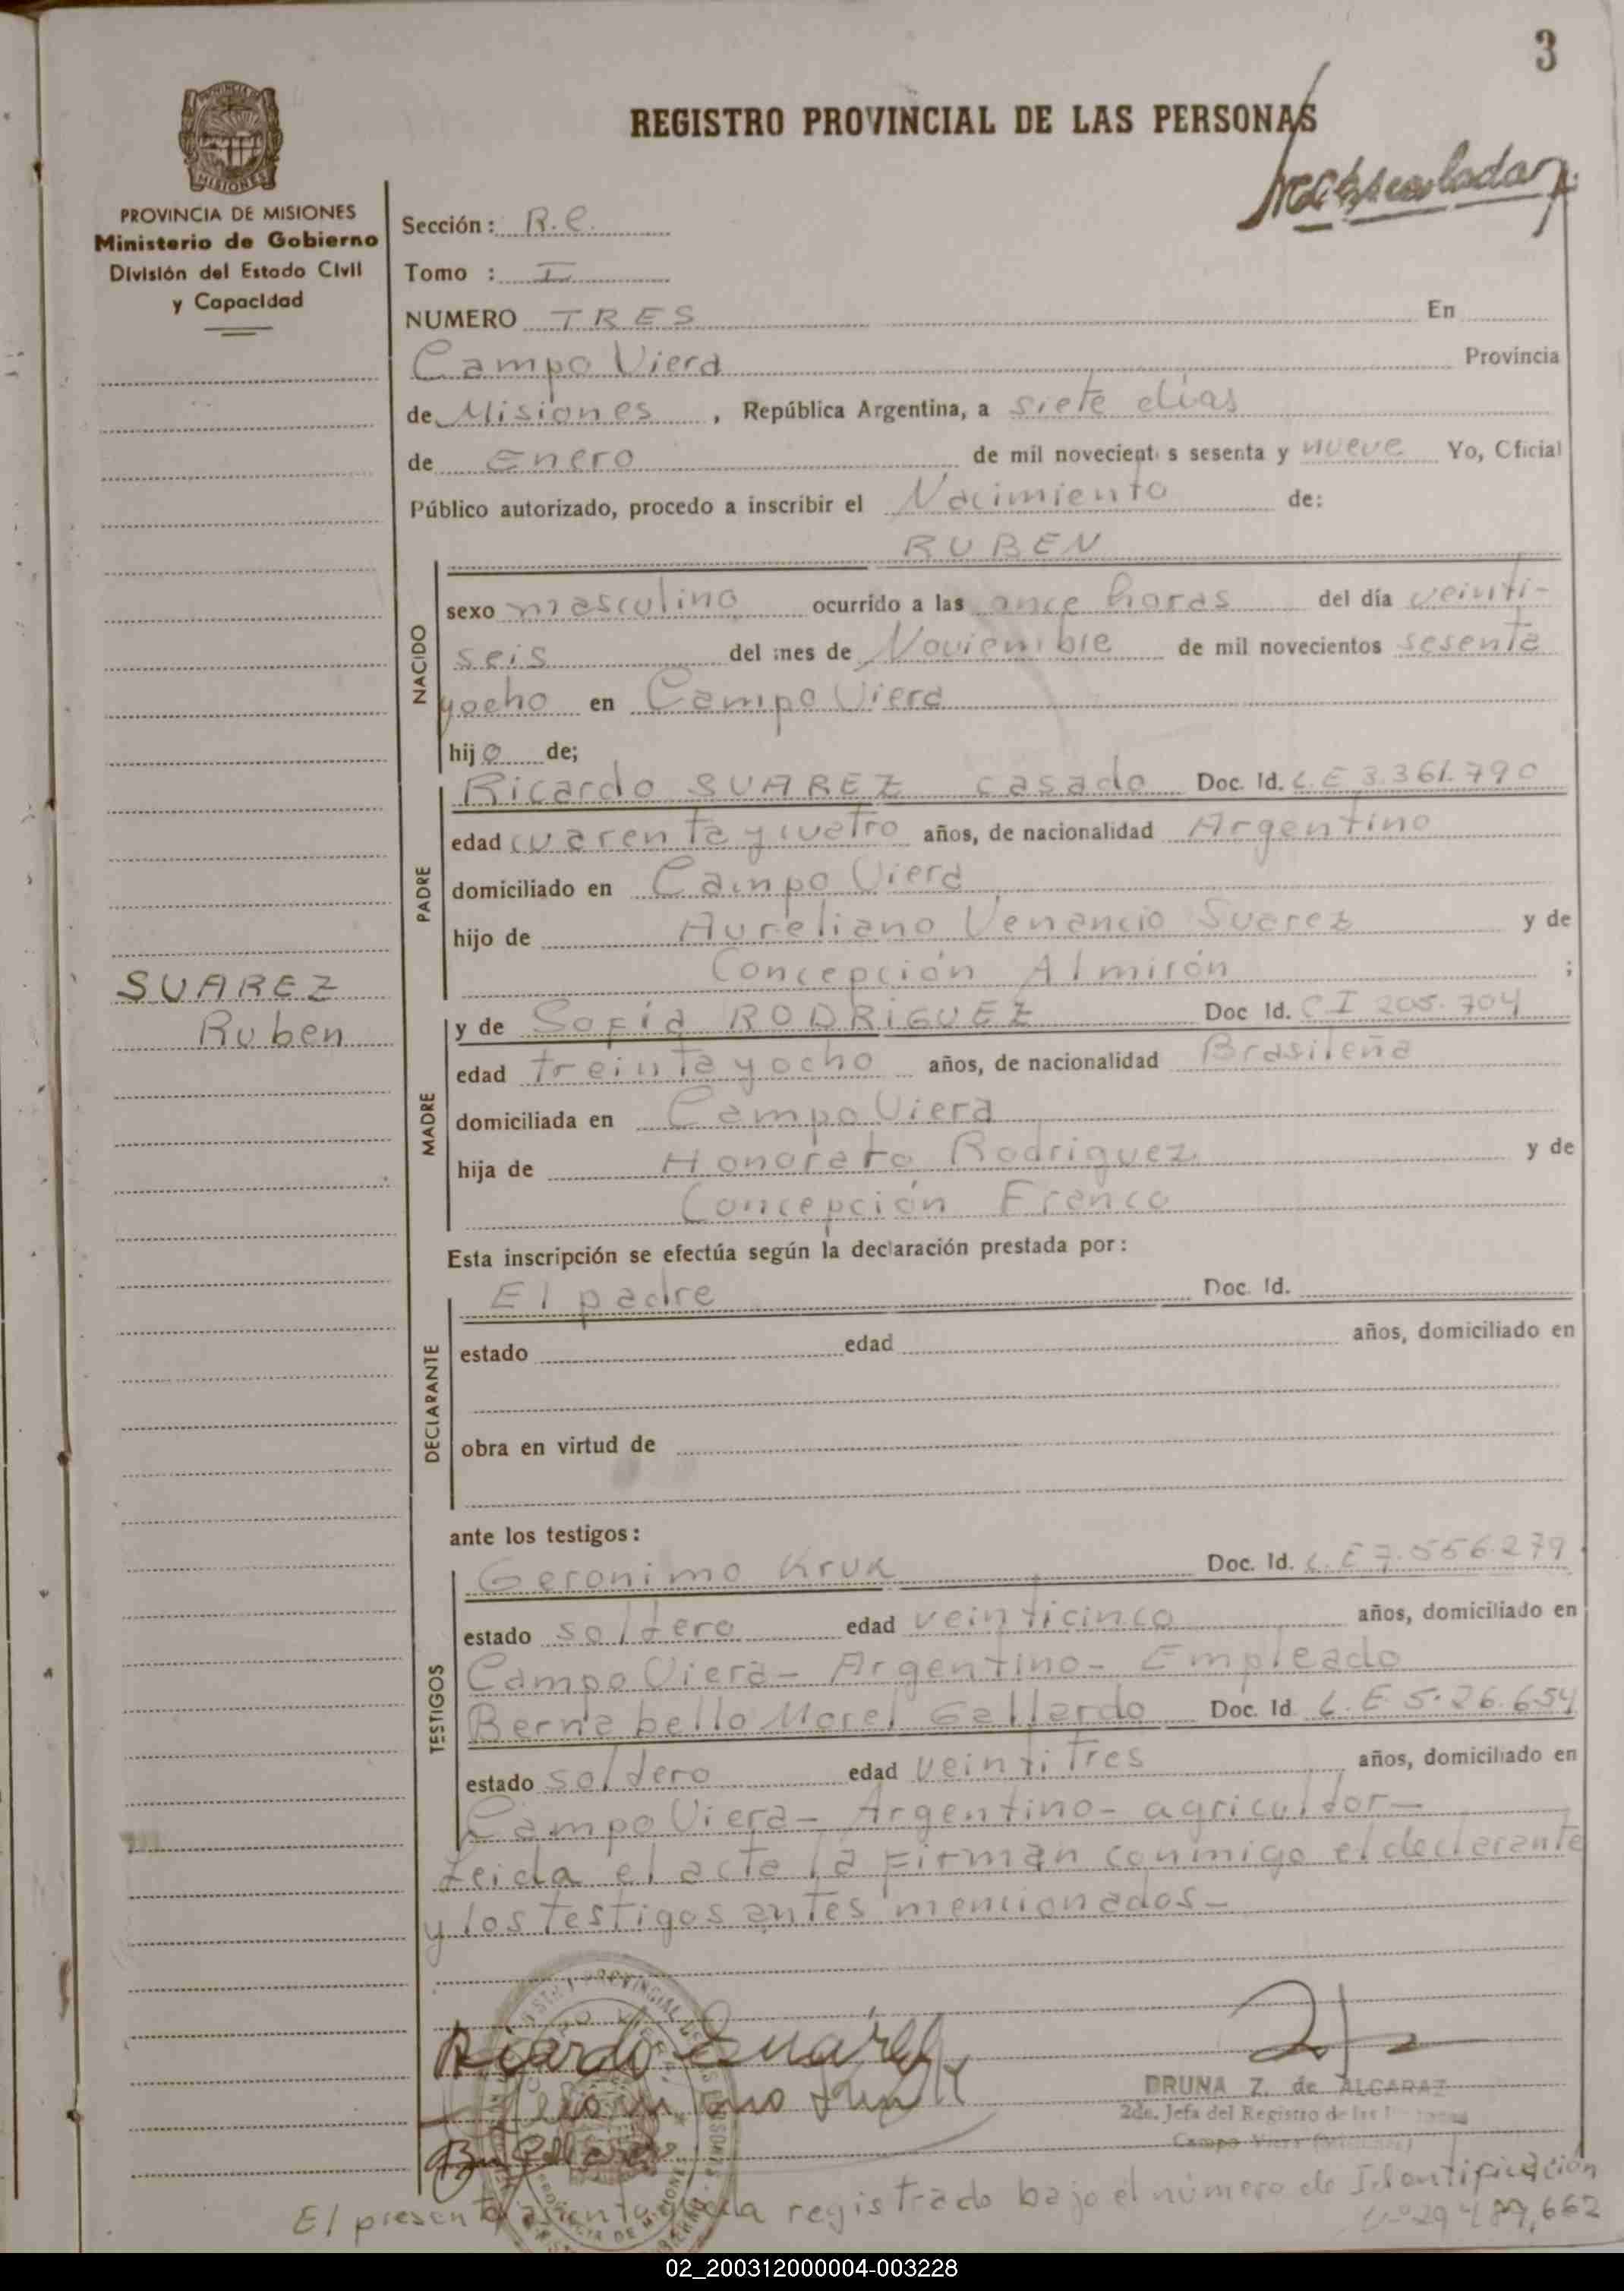 3
REGISTRO PROVINCIAL DE LAS PERSONAS
MISIONES
PROVINCIA DE MISIONES
Ministerio de Gobierno
División del Estado Civil
y Capacidad
Sección: R.C.
Tomo : I
NUMERO TRES En
Campo Viera Provincia
de Misiones, República Argentina, a siete días
de Enero de mil novecient s sesenta y nueve Yo, Oficial
Público autorizado, procedo a inscribir el Nacimiento de:
RUBEN
NACIDO
sexo masculino ocurrido a las once horas del día veinti-
seis del mes de Noviembre de mil novecientos sesenta
y ocho en Campo Viera
hijo de;
PADRE
Ricardo SUAREZ casado Doc. Id. L.E 3.361.790
edad cuarenta y cuatro años, de nacionalidad Argentino
domiciliado en Campo Viera
hijo de Aureliano Venancio Suarez y de
Concepción Almirón ;
SUAREZ
Ruben
MADRE
y de Sofía RODRIGUEZ Doc Id. C I 205.704
edad treinta y ocho años, de nacionalidad Brasileña
domiciliada en Campo Viera
hija de Honorato Rodriguez y de
Concepción Franco
Esta inscripción se efectúa según la declaración prestada por:
DECLARANTE
El padre Doc. Id.
estado edad años, domiciliado en
obra en virtud de
ante los testigos:
TESTIGOS
Geronimo Kruk Doc. Id. L.E 7.556.279
estado soltero edad veinticinco años, domiciliado en
Campo Viera - Argentino - Empleado
Bernabello Morel Gallardo Doc. Id L.E 5.26.654
estado soltero edad veintitres años, domiciliado en
Campo Viera - Argentino - agricultor -
Leida el acta la firman conmigo el declarante
y los testigos antes mencionados -
Ricardo Suárez
BRUNA Z. de ALGARAZ
2da. Jefa del Registro de las
Campo Viera (Misiones)
El presente asiento queda registrado bajo el número de Identificación
02_200312000004-003228